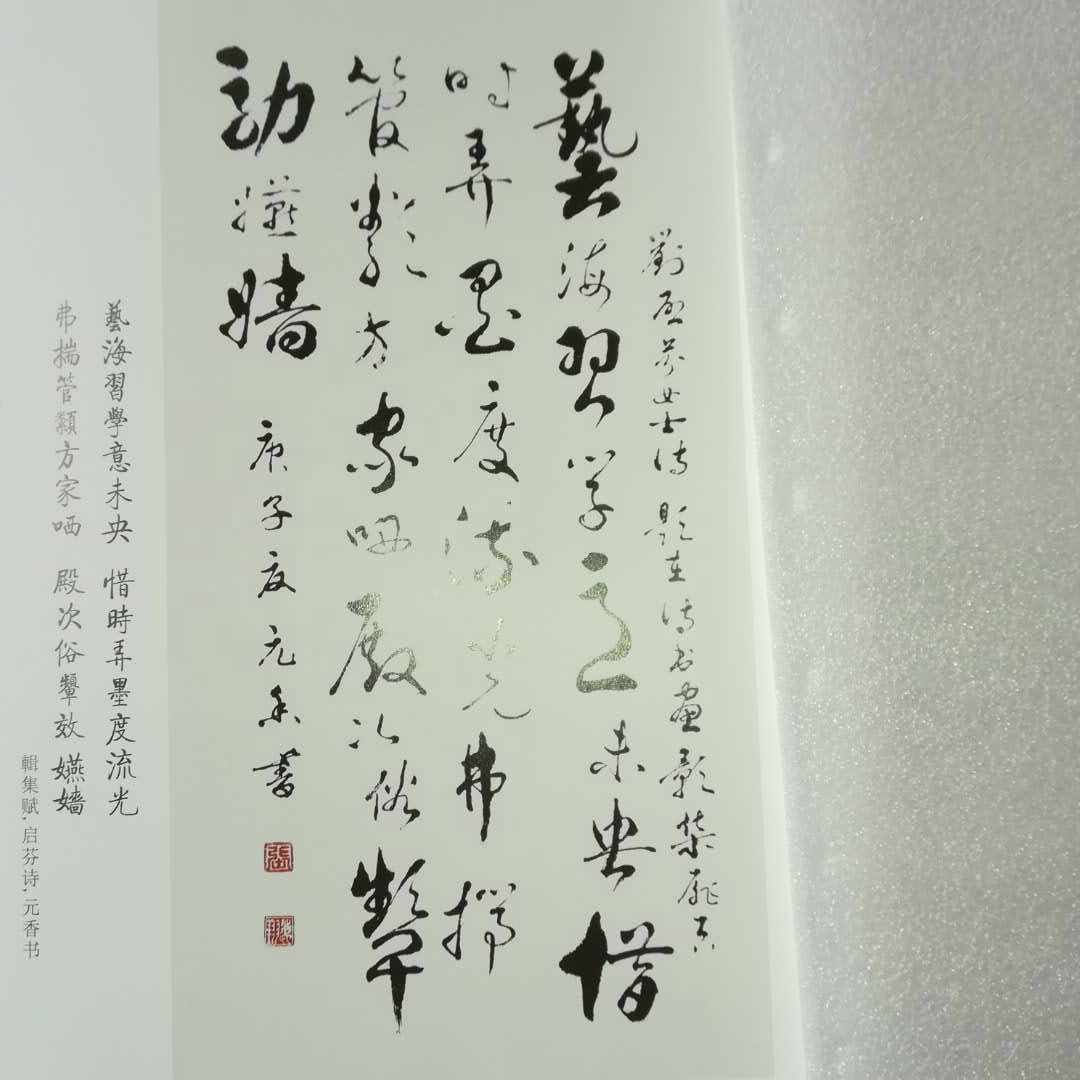 劉啟芬女士詩 題在詩书畫彩集扉页
藝海習學意未央惜
時弄墨度流光弗揣
管纇方家哂殿次俗顰
効嬿嬙 庚子夏元香書
張
藝海習學意未央 惜時弄墨度流光
弗揣管纇方家哂 殿次俗顰效嬿嬙
輯集赋,启芬诗,元香书